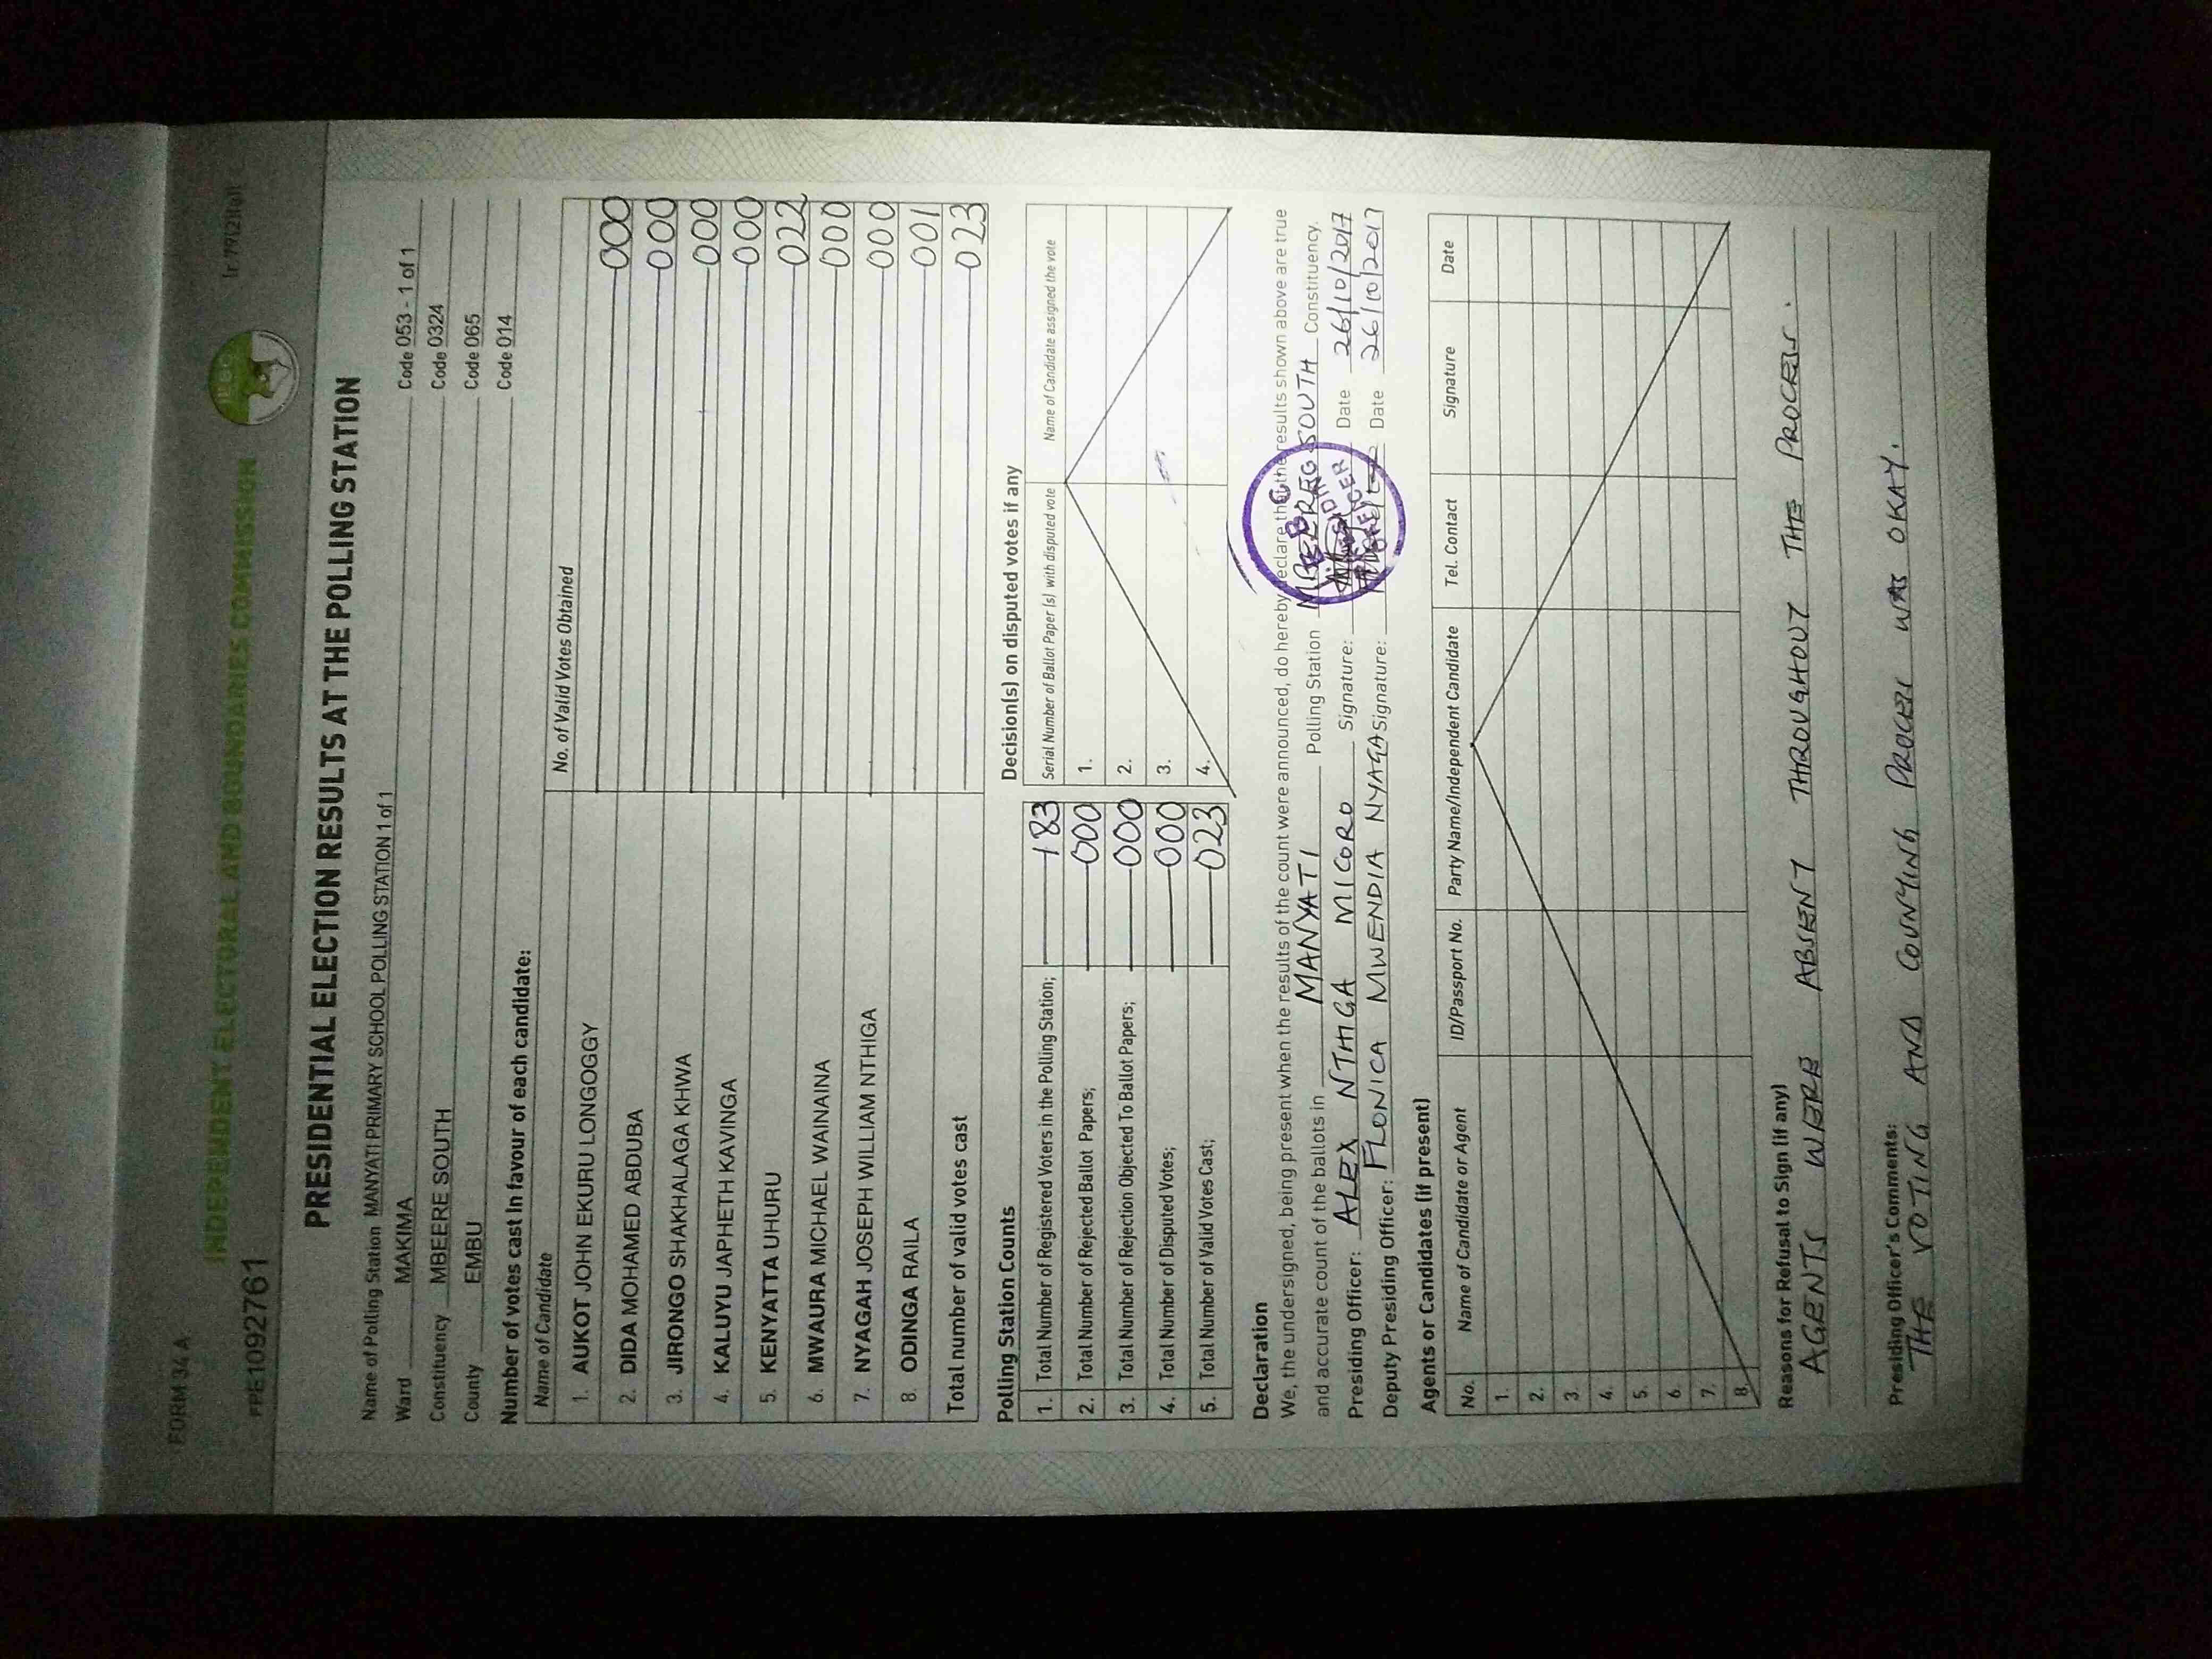 FORM 34 A
INDEPENDENT ELECTORAL AND BOUNDARIES COMMISSION
PRE1092761
PRESIDENTIAL ELECTION RESULTS AT THE POLLING STATION
Name of Polling Station MANYATI PRIMARY SCHOOL POLLING STATION 1 of 1 Code 053 - 1 of 1
Ward MAKIMA Code 0324
Constituency MBEERE SOUTH Code 065
County EMBU Code 014
Number of votes cast In favour of each candidate:
Name of Candidate No. of Valid Votes Obtained
1. AUKOT JOHN EKURU LONGOGGY 000
2. DIDA MOHAMED ABDUBA 000
3. JIRONGO SHAKHALAGA KHWA 000
4. KALUYU JAPHETH KAVINGA 000
5. KENYATTA UHURU 022
6. MWAURA MICHAEL WAINAINA 000
7. NYAGAH JOSEPH WILLIAM NTHIGA 000
8. ODINGA RAILA 001
Total number of valid votes cast 023
Polling Station Counts
1. Total Number of Registered Voters in the Polling Station; 183
2. Total Number of Rejected Ballot Papers; 000
3. Total Number of Rejection Objected To Ballot Papers; 000
4. Total Number of Disputed Votes; 000
5. Total Number of Valid Votes Cast; 023
Decision(s) on disputed votes if any
Serial Number of Ballot Paper (s) with disputed vote Name of Candidate assigned the vote
1.
2.
3.
4.
Declaration
We, the undersigned, being present when the results of the count were announced, do hereby declare that the results shown above are true
and accurate count of the ballots in MANYATI Polling Station MBEERE SOUTH Constituency.
Presiding Officer: ALEX NTHIGA MICORO Signature: Date 26/10/2017
Deputy Presiding Officer: FLONICA MWENDIA NYAGA Signature: Date 26/10/2017
Agents or Candidates (if present)
No. Name of Candidate or Agent ID/Passport No. Party Name/Independent Candidate Tel. Contact Signature Date
1.
2.
3.
4.
5.
6.
7.
8.
Reasons for Refusal to Sign (if any)
AGENTS WERE ABSENT THROUGHOUT THE PROCESS.
Presiding Officer's Comments:
THE VOTING AND COUNTING PROCESS WAS OKAY.